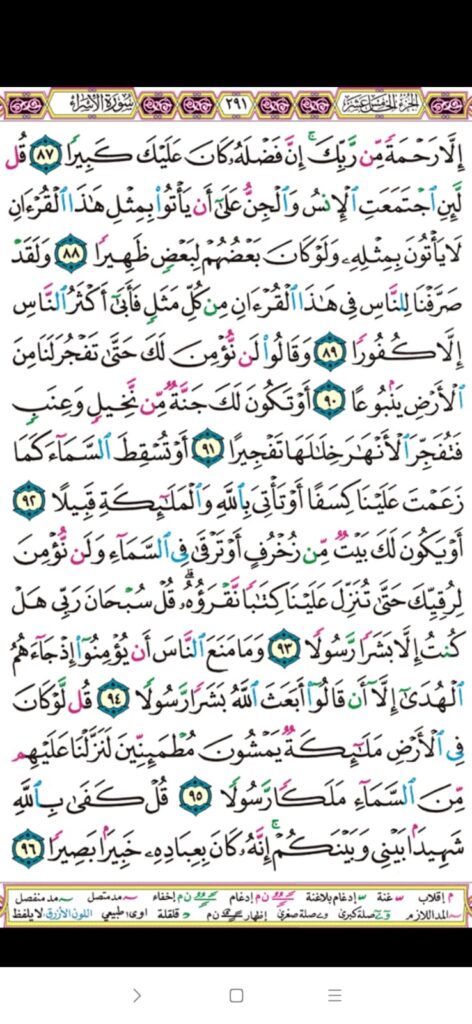 الجزء الخامس عشر ٢٩١ سورة الإسراء
إِلَّا رَحْمَةً مِّن رَّبِّكَ ۚ إِنَّ فَضْلَهُۥ كَانَ عَلَيْكَ كَبِيرًا ٨٧ قُل
لَّئِنِ ٱجْتَمَعَتِ ٱلْإِنسُ وَٱلْجِنُّ عَلَىٰٓ أَن يَأْتُوا۟ بِمِثْلِ هَـٰذَا ٱلْقُرْءَانِ
لَا يَأْتُونَ بِمِثْلِهِۦ وَلَوْ كَانَ بَعْضُهُمْ لِبَعْضٍ ظَهِيرًا ٨٨ وَلَقَدْ
صَرَّفْنَا لِلنَّاسِ فِى هَـٰذَا ٱلْقُرْءَانِ مِن كُلِّ مَثَلٍ فَأَبَىٰٓ أَكْثَرُ ٱلنَّاسِ
إِلَّا كُفُورًا ٨٩ وَقَالُوا۟ لَن نُّؤْمِنَ لَكَ حَتَّىٰ تَفْجُرَ لَنَا مِنَ
ٱلْأَرْضِ يَنۢبُوعًا ٩٠ أَوْ تَكُونَ لَكَ جَنَّةٌ مِّن نَّخِيلٍ وَعِنَبٍ
فَتُفَجِّرَ ٱلْأَنْهَـٰرَ خِلَـٰلَهَا تَفْجِيرًا ٩١ أَوْ تُسْقِطَ ٱلسَّمَآءَ كَمَا
زَعَمْتَ عَلَيْنَا كِسَفًا أَوْ تَأْتِىَ بِٱللَّهِ وَٱلْمَلَـٰٓئِكَةِ قَبِيلًا ٩٢
أَوْ يَكُونَ لَكَ بَيْتٌ مِّن زُخْرُفٍ أَوْ تَرْقَىٰ فِى ٱلسَّمَآءِ وَلَن نُّؤْمِنَ
لِرُقِيِّكَ حَتَّىٰ تُنَزِّلَ عَلَيْنَا كِتَـٰبًا نَّقْرَؤُهُۥ ۗ قُلْ سُبْحَانَ رَبِّى هَلْ
كُنتُ إِلَّا بَشَرًا رَّسُولًا ٩٣ وَمَا مَنَعَ ٱلنَّاسَ أَن يُؤْمِنُوٓا۟ إِذْ جَآءَهُمُ
ٱلْهُدَىٰٓ إِلَّآ أَن قَالُوٓا۟ أَبَعَثَ ٱللَّهُ بَشَرًا رَّسُولًا ٩٤ قُل لَّوْ كَانَ
فِى ٱلْأَرْضِ مَلَـٰٓئِكَةٌ يَمْشُونَ مُطْمَئِنِّينَ لَنَزَّلْنَا عَلَيْهِم
مِّنَ ٱلسَّمَآءِ مَلَكًا رَّسُولًا ٩٥ قُلْ كَفَىٰ بِٱللَّهِ
شَهِيدًۢا بَيْنِى وَبَيْنَكُمْ ۚ إِنَّهُۥ كَانَ بِعِبَادِهِۦ خَبِيرًۢا بَصِيرًا ٩٦
م إقلاب س غنة س إدغام بلاغنة ن م إدغام ن م إخفاء مد متصل مد منفصل
المد اللازم صلة كبرى صلة صغرى إظهار ن م قلقلة اوى طبيعي اللون الأزرق لا يلفظ